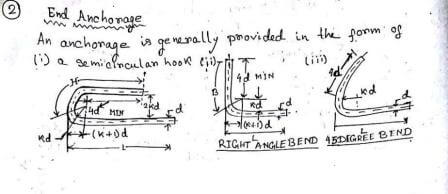 2
End Anchorage
An anchorage is generally provided in the form of
(i) a semicircular hook (ii) (iii)
H
4d MIN
2kd
d
kd
(k+1)d
L
B
4d MIN
kd
d
(k+1)d
L
RIGHT ANGLE BEND
4d
kd
d
L
45 DEGREE BEND